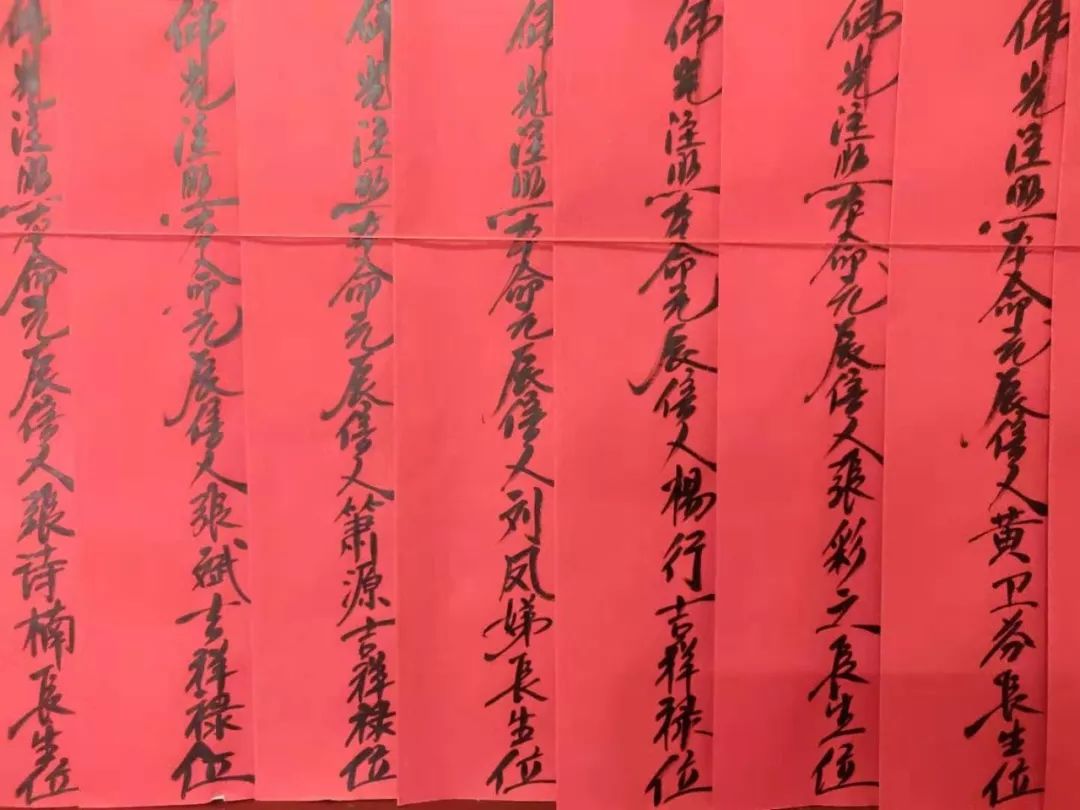 佛光注照本命元辰信人黄卫芬长生位
佛光注照本命元辰信人張彩云長生位
佛光注照本命元辰信人楊行吉祥禄位
佛光注照本命元辰信人刘凤娣長生位
佛光注照本命元辰信人箫源吉祥禄位
佛光注照本命元辰信人張斌吉祥禄位
佛光注照本命元辰信人張诗楠長生位